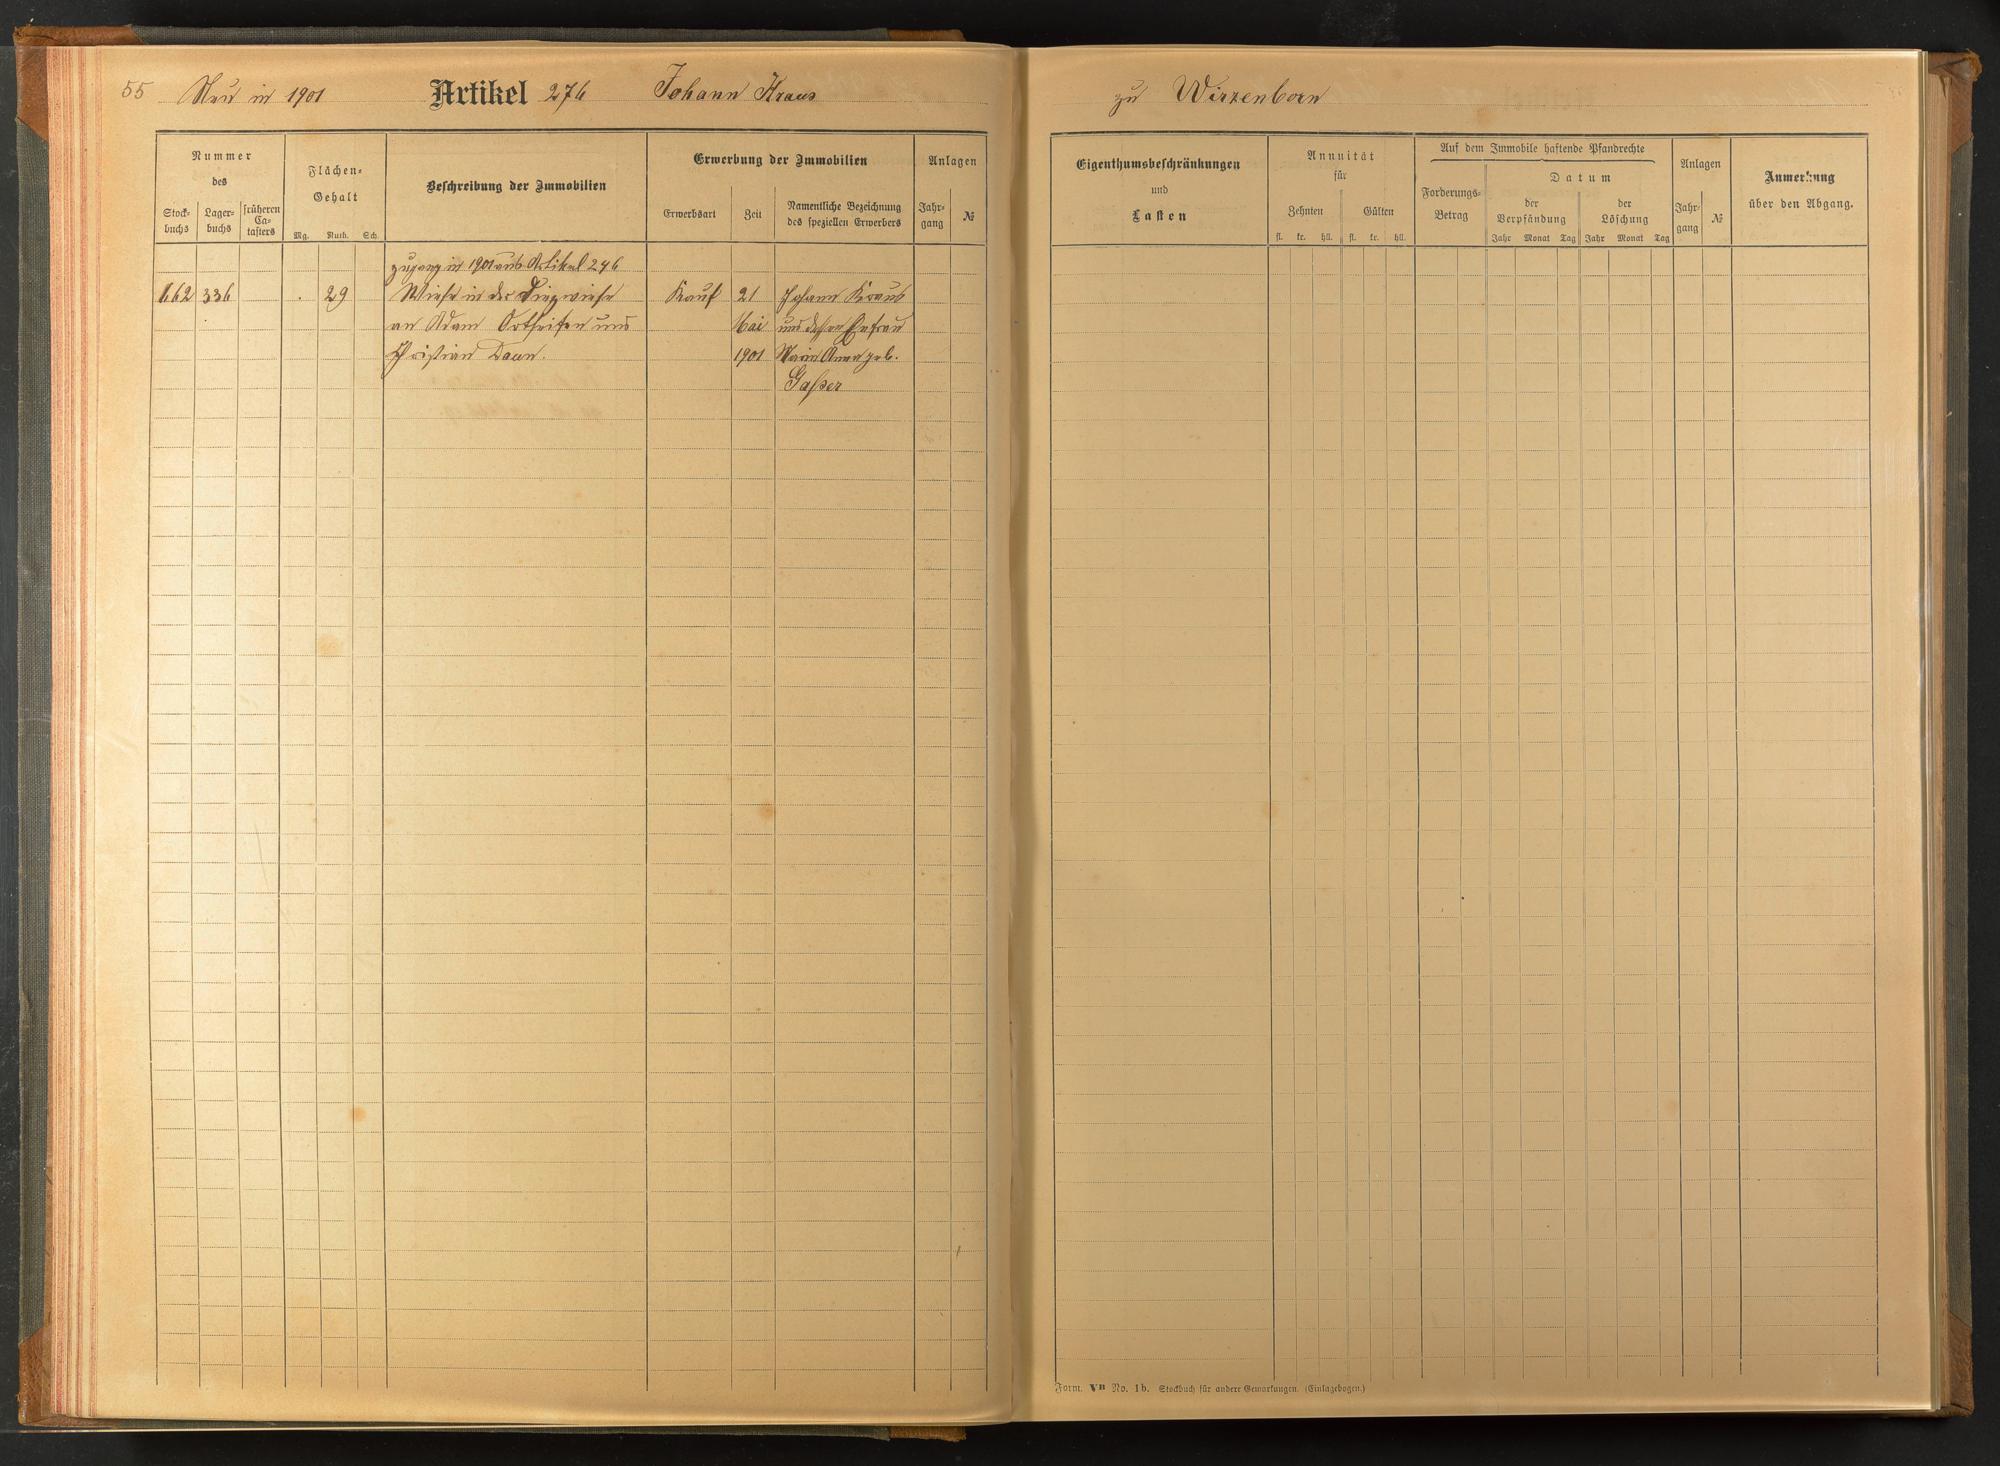 55 Neu in 1901 Artikel 276 Johann Kraus
Nummer
des
Stock-
buchs
Lager-
buchs
früheren
Ca-
tasters
Flächen-
Gehalt
Mg. Ruth. Sch.
Beschreibung der Immobilien
Erwerbung der Immobilien
Erwerbsart
Zeit
Namentliche Bezeichnung
des speziellen Erwerbers
Anlagen
Jahr-
gang
№
Zugang in 1901 aus Artikel 246
662 336 . 29 Wiese in der Diezwiese Kauf 21 Johann Kraus
an Adam Ortseifen und Mai und dessen Ehefrau
Christian Daun. 1901 Maria Anna geb.
Gasser
zu Wirzenborn
Eigenthumsbeschränkungen
und
Lasten
Annuität
für
Zehnten
Gülten
fl. kr. hll. fl. kr. hll.
Auf dem Immobile haftende Pfandrechte
Forderungs-
Betrag
Datum
der
Verpfändung
Jahr Monat Tag
der
Löschung
Jahr Monat Tag
Anlagen
Jahr-
gang
№
Anmerkung
über den Abgang.
Form. VB No. 1b. Stockbuch für andere Gemarkungen. (Einlagebogen.)